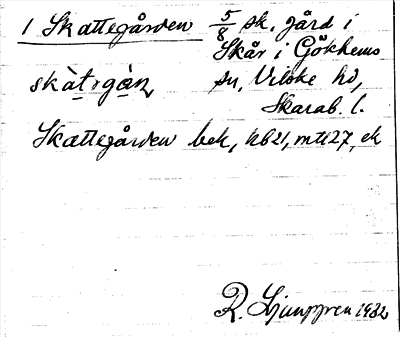 1 Skattegården 5/8 sk. gård i
Skår i Gökhems
skàtɩgàn, sn, Vilske hd,
Skarab. l.
Skattegården bek, hb21, mtl27, ek
R. Ljunggren 1932